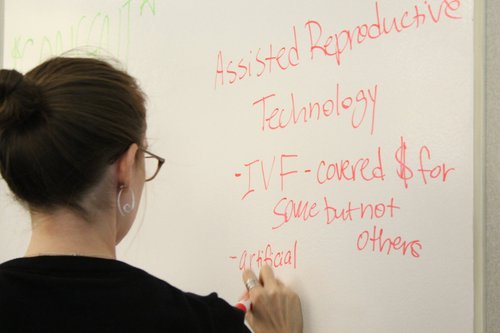 *CONSENT*
Assisted Reproductive
Technology
- IVF - covered $ for
some but not
others
- artificial